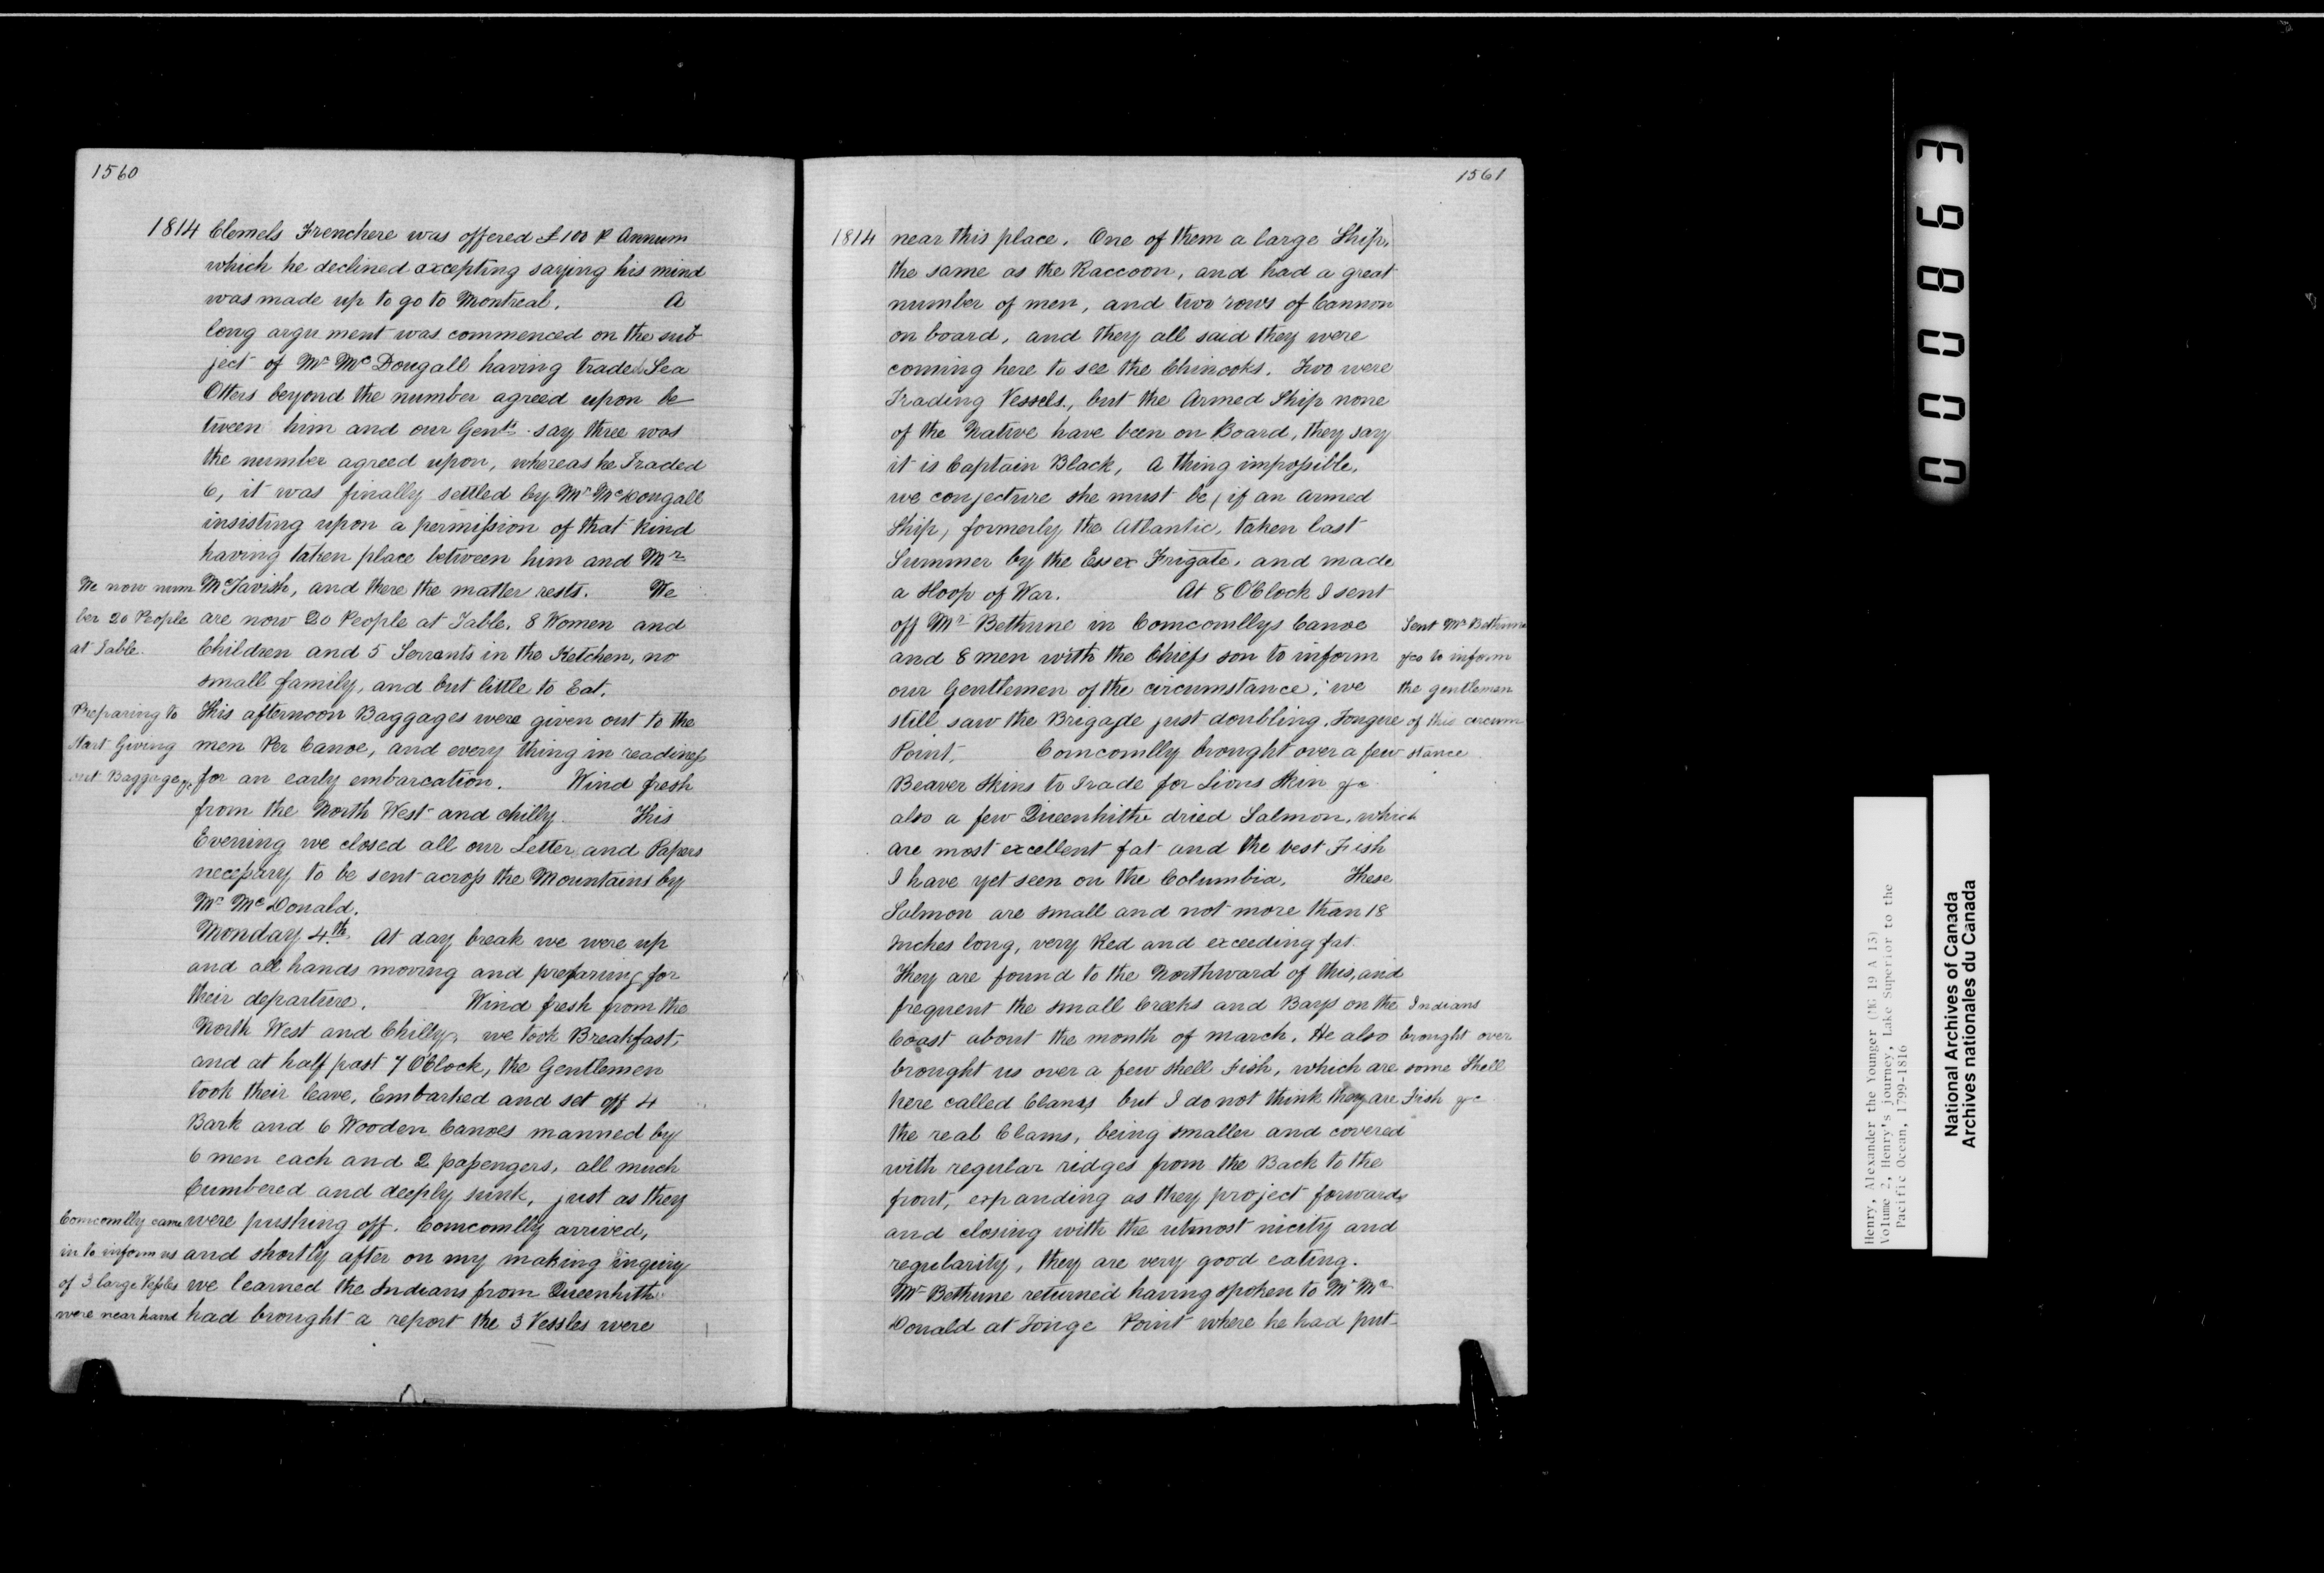 1560
1814 Clemels Frenchere was offered £100 P Annum
which he declined axcepting saying his mind
was made up to go to Montreal. A
long argu ment was commenced on the sub
ject of Mr McDougall having traded Sea
Otters beyond the number agreed upon be
tween him and our Gents say three was
the number agreed upon, whereas he Traded
6, it was finally settled by Mr McDougall
insisting upon a permission of that kind
having taken place between him and Mr
McTavish, and there the matter rests. We
are now 20 People at Table. 8 Women and
Children and 5 Servants in the Ketchen, no
small family, and but little to Eat.
This afternoon Baggages were given out to the
men Per Canoe, and every thing in readiness
for an early embarcation. Wind fresh
from the North West and chilly. This
Evening we closed all our Letter and Papers
necessary to be sent across the Mountains by
Mr McDonald.
Monday 4th. At day break we were up
and all hands moving and preparing for
their departure. Wind fresh from the
North West and Chilly, we took Breakfast,
and at half past 7 OClock, the Gentlemen
took their leave, Embarked and set off 4
Bark and 6 Wooden Canoes manned by
6 men each and 2 passengers, all much
Cumbered and deeply sunk, just as they
were pushing off. Comcomlly arrived,
and shortly after on my making inquiry
we learned the Indians from Queenhithe
had brought a report the 3 Vessles were
We now num
ber 20 People
at Table.
Preparing to
start Giving
out Baggage &c
Comcomlly came
in to inform us
of 3 large Vessles
were near hand
1561
1814 near this place. One of them a large Ship,
the same as the Raccoon, and had a great
number of men, and two rows of Cannon
on board, and they all said they were
coming here to see the Chinooks. Two were
Trading Vessels, but the Armed Ship none
of the Native have been on Board, they say
it is Captain Black, A thing impossible,
we conjecture she must be, if an armed
Ship, formerly the Atlantic, taken last
Summer by the Essex Frigate, and made
a Sloop of War. At 8 OClock I sent
off Mr Bethune in Comcomllys Canoe
and 8 men with the Chiefs son to inform
our Gentlemen of the circumstance; we
still saw the Brigade just doubling Tongue
Point. Comcomlly brought over a few
Beaver Skins to Trade for Lions Skin &c
also a few Queenhithe dried Salmon, which
are most excellent fat and the best Fish
I have yet seen on the Columbia. These
Salmon are small and not more than 18
Inches long, very Red and exceeding fat
They are found to the Northward of this, and
frequent the small Creeks and Bays on the
Coast about the month of march. He also
brought us over a few Shell Fish, which are
here called Clams but I do not think they are
the real Clams, being smaller and covered
with regular ridges from the Back to the
front, expanding as they project forwards
and closing with the utmost nicity and
regularity, they are very good eating.
Mr Bethune returned having spoken to Mr Mc
Donald at Tonge Point where he had put
Sent Mr Bethune
&co to inform
the gentlemen
of this circum
stance
Indians
brought over
some Shell
Fish &c
000863
Henry, Alexander the Younger (MG 19 A 13)
Volume 2, Henry's journey, Lake Superior to the
Pacific Ocean, 1799-1816
National Archives of Canada
Archives nationales du Canada